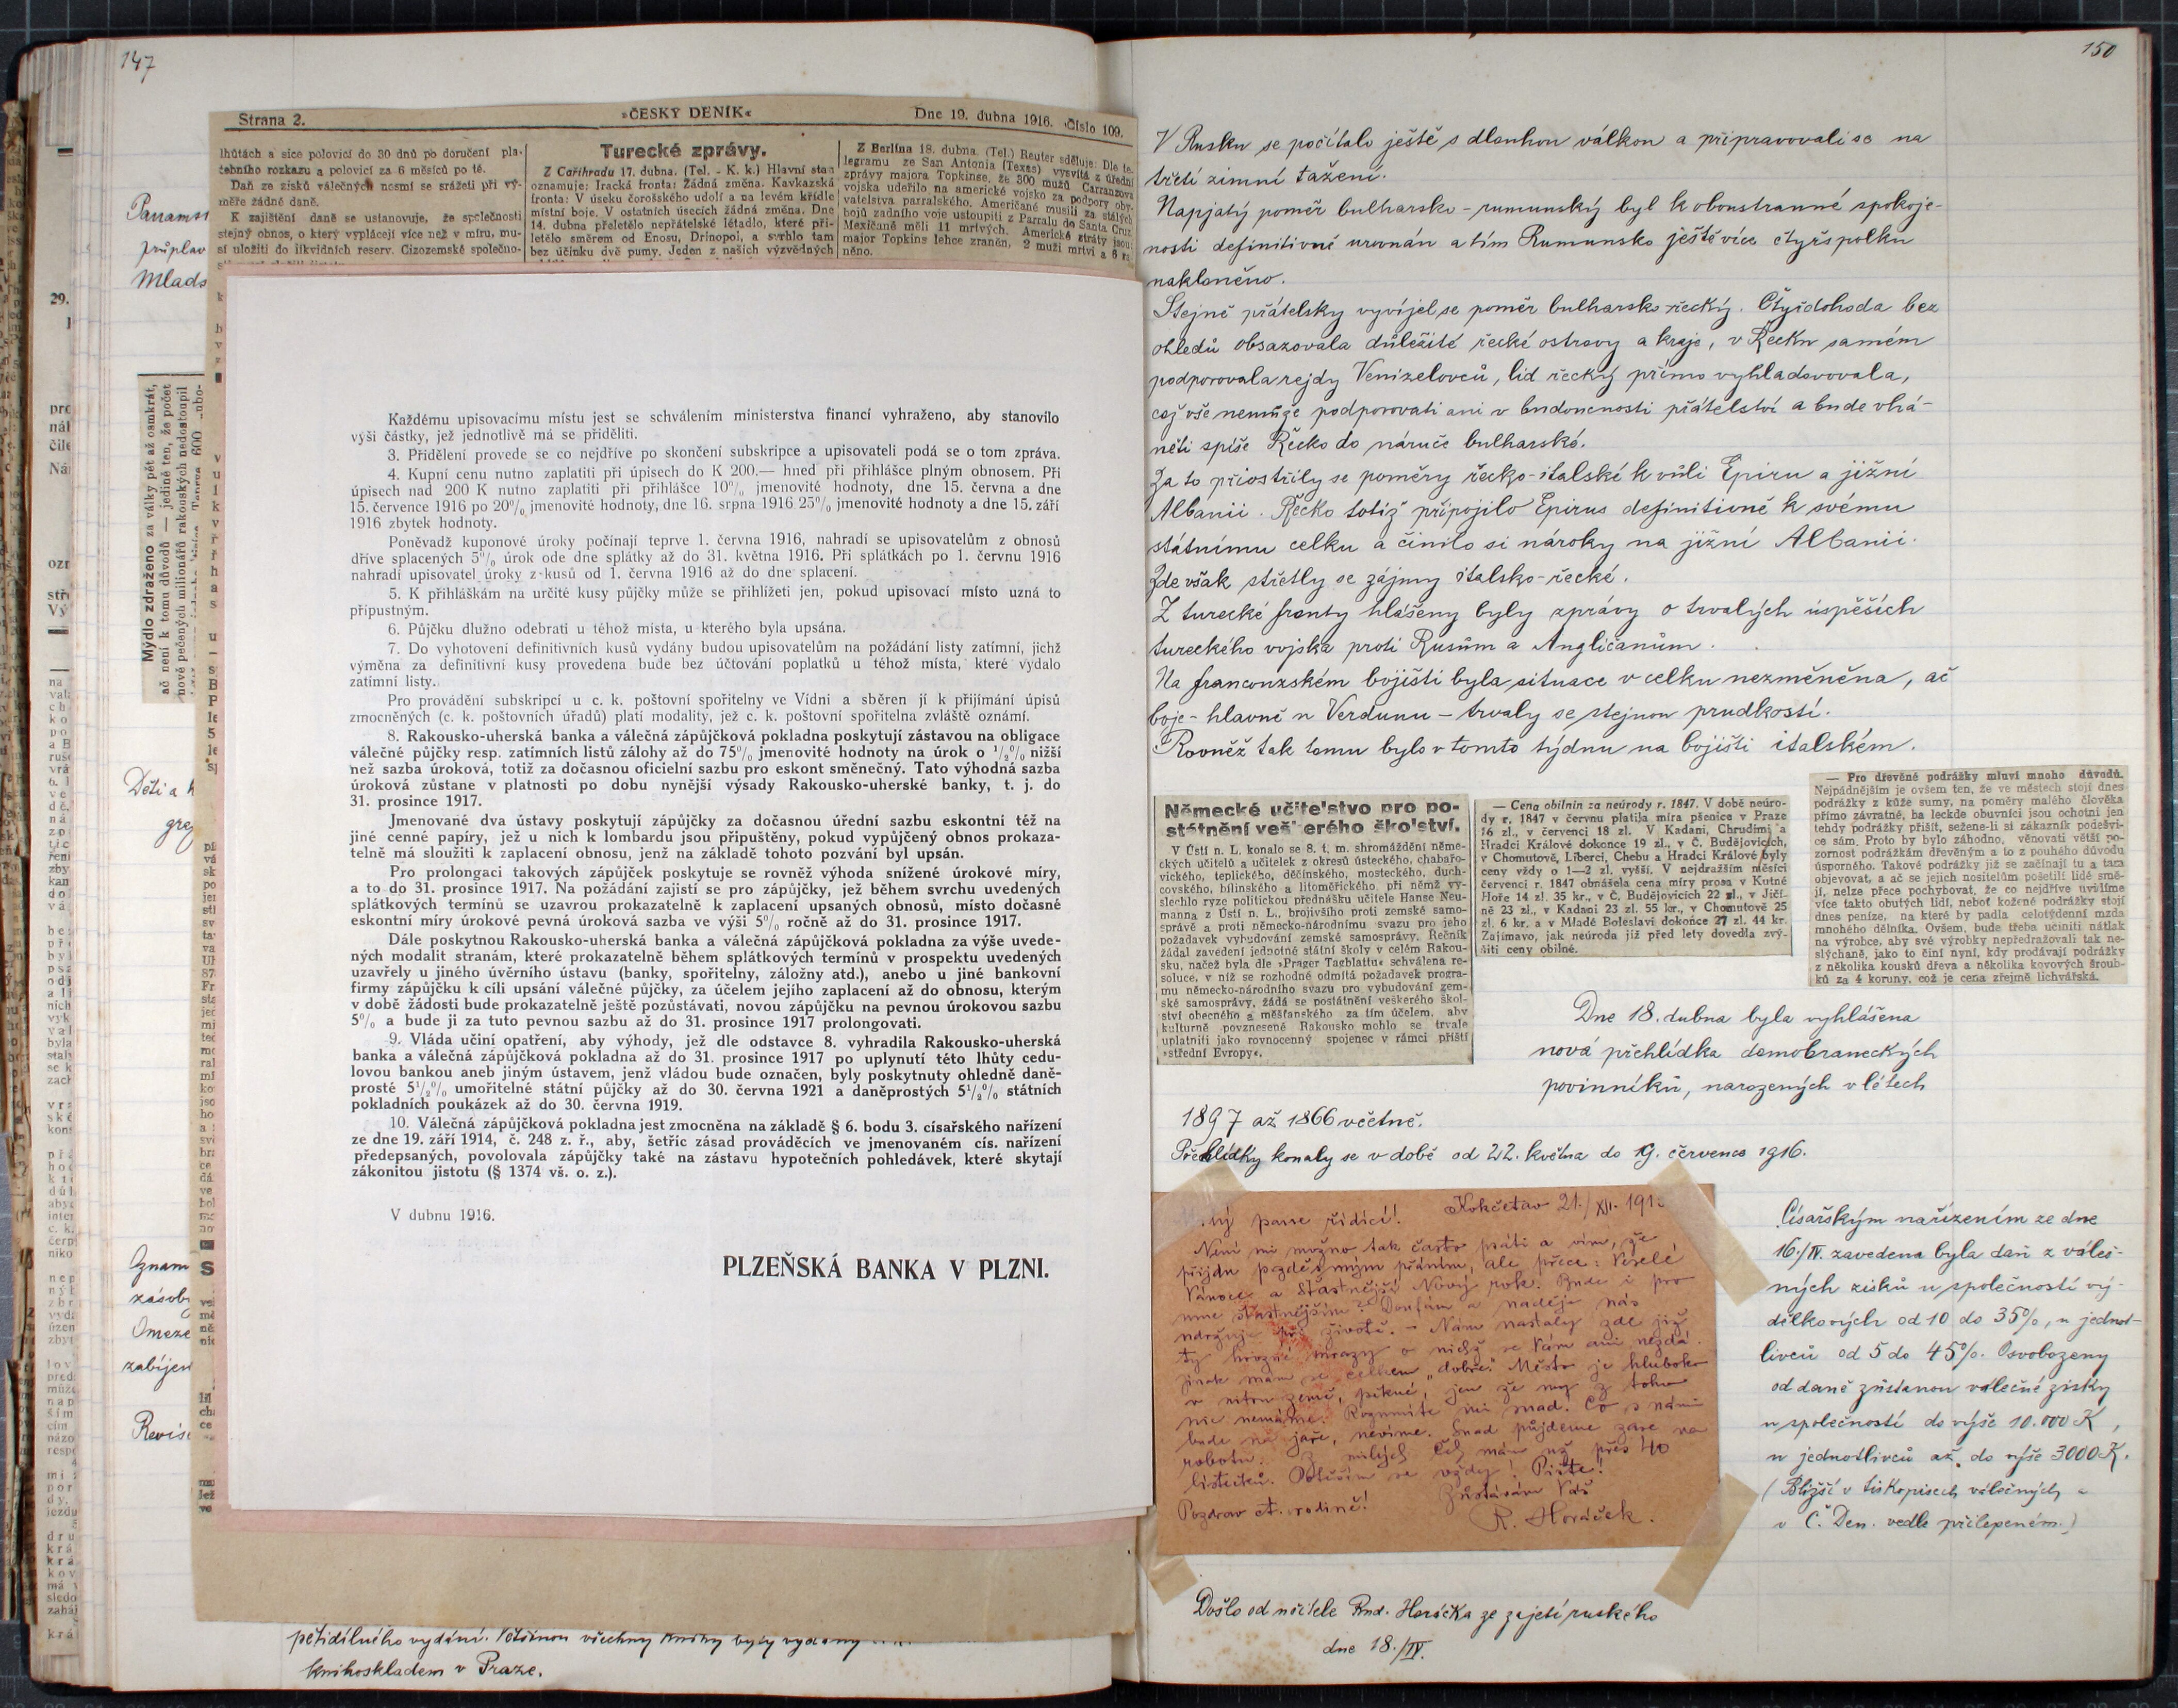 147
Strana 2.
»ČESKÝ DENÍK«
Dne 19. dubna 1916. Číslo 109.
lhůtách a sice polovicí do 30 dnů po doručení pla-
tebního rozkazu a polovicí za 6 měsíců po té.
Daň ze zisků válečných nesmí se srážeti při vý-
měře žádné daně.
K zajištění daně se ustanovuje, že společnosti
stejný obnos, o který vyplácejí více než v míru, mu-
sí uložiti do likvidních reserv. Cizozemské společno-
Turecké zprávy.
Z Cařihradu 17. dubna. (Tel. - K. k.) Hlavní stan
oznamuje: Iracká fronta: Žádná změna. Kavkazská
fronta: V úseku čorošského udolí a na levém křídle
místní boje. V ostatních úsecích žádná změna. Dne
14. dubna přeletělo nepřátelské létadlo, které při-
letělo směrem od Enosu, Drinopol, a svrhlo tam
bez účinku dvě pumy. Jeden z našich výzvědných
Z Berlína 18. dubna. (Tel.) Reuter sděluje: Dle te-
legramu ze San Antonia (Texas) vysvítá z úřední
zprávy majora Topkinse, že 300 mužů Carranzova
vojska udeřilo na americké vojsko za podpory oby-
vatelstva parralského. Američané musili za stálých
bojů zadního voje ustoupiti z Parralu do Santa Cruz.
Mexičané měli 11 mrtvých. Americké ztráty jsou:
major Topkins lehce zraněn, 2 muži mrtvi a 6 ra-
něno.
průplav
Mýdlo zdraženo za války pět až osmkrát,
ač není k tomu důvodů — jedině ten, že počet
nově pečených milionářů rakouských nedostoupil
Děti a
zabíjen
Každému upisovacímu místu jest se schválením ministerstva financí vyhraženo, aby stanovilo
výši částky, jež jednotlivě má se přiděliti.
3. Přidělení provede se co nejdříve po skončení subskripce a upisovateli podá se o tom zpráva.
4. Kupní cenu nutno zaplatiti při úpisech do K 200.— hned při přihlášce plným obnosem. Při
úpisech nad 200 K nutno zaplatiti při přihlášce 10% jmenovité hodnoty, dne 15. června a dne
15. července 1916 po 20% jmenovité hodnoty, dne 16. srpna 1916 25% jmenovité hodnoty a dne 15. září
1916 zbytek hodnoty.
Poněvadž kuponové úroky počínají teprve 1. června 1916, nahradí se upisovatelům z obnosů
dříve splacených 5% úrok ode dne splátky až do 31. května 1916. Při splátkách po 1. červnu 1916
nahradí upisovatel úroky z kusů od 1. června 1916 až do dne splacení.
5. K přihláškám na určité kusy půjčky může se přihlížeti jen, pokud upisovací místo uzná to
přípustným.
6. Půjčku dlužno odebrati u téhož místa, u kterého byla upsána.
7. Do vyhotovení definitivních kusů vydány budou upisovatelům na požádání listy zatímní, jichž
výměna za definitivní kusy provedena bude bez účtování poplatků u téhož místa, které vydalo
zatímní listy.
Pro provádění subskripcí u c. k. poštovní spořitelny ve Vídni a sběren jí k přijímání úpisů
zmocněných (c. k. poštovních úřadů) platí modality, jež c. k. poštovní spořitelna zvláště oznámí.
8. Rakousko-uherská banka a válečná zápůjčková pokladna poskytují zástavou na obligace
válečné půjčky resp. zatímních listů zálohy až do 75% jmenovité hodnoty na úrok o ½% nižší
než sazba úroková, totiž za dočasnou oficielní sazbu pro eskont směnečný. Tato výhodná sazba
úroková zůstane v platnosti po dobu nynější výsady Rakousko-uherské banky, t. j. do
31. prosince 1917.
Jmenované dva ústavy poskytují zápůjčky za dočasnou úřední sazbu eskontní též na
jiné cenné papíry, jež u nich k lombardu jsou připuštěny, pokud vypůjčený obnos prokaza-
telně má sloužiti k zaplacení obnosu, jenž na základě tohoto pozvání byl upsán.
Pro prolongaci takových zápůjček poskytuje se rovněž výhoda snížené úrokové míry,
a to do 31. prosince 1917. Na požádání zajistí se pro zápůjčky, jež během svrchu uvedených
splátkových termínů se uzavrou prokazatelně k zaplacení upsaných obnosů, místo dočasné
eskontní míry úrokové pevná úroková sazba ve výši 5% ročně až do 31. prosince 1917.
Dále poskytnou Rakousko-uherská banka a válečná zápůjčková pokladna za výše uvede-
ných modalit stranám, které prokazatelně během splátkových termínů v prospektu uvedených
uzavřely u jiného úvěrního ústavu (banky, spořitelny, záložny atd.), anebo u jiné bankovní
firmy zápůjčku k cíli upsání válečné půjčky, za účelem jejího zaplacení až do obnosu, kterým
v době žádosti bude prokazatelně ještě pozůstávati, novou zápůjčku na pevnou úrokovou sazbu
5% a bude ji za tuto pevnou sazbu až do 31. prosince 1917 prolongovati.
9. Vláda učiní opatření, aby výhody, jež dle odstavce 8. vyhradila Rakousko-uherská
banka a válečná zápůjčková pokladna až do 31. prosince 1917 po uplynutí této lhůty cedu-
lovou bankou aneb jiným ústavem, jenž vládou bude označen, byly poskytnuty ohledně daně-
prosté 5½% umořitelné státní půjčky až do 30. června 1921 a daněprostých 5½% státních
pokladních poukázek až do 30. června 1919.
10. Válečná zápůjčková pokladna jest zmocněna na základě § 6. bodu 3. císařského nařízení
ze dne 19. září 1914, č. 248 z. ř., aby, šetříc zásad prováděcích ve jmenovaném cís. nařízení
předepsaných, povolovala zápůjčky také na zástavu hypotečních pohledávek, které skytají
zákonitou jistotu (§ 1374 vš. o. z.).
V dubnu 1916.
PLZEŇSKÁ BANKA V PLZNI.
pětidílného vydání. Většinou všechny knihy byly vydány
knihoskladem v Praze.
150
V Rusku se počítalo ještě s dlouhou válkou a připravovali se na
třetí zimní tažení.
Napjatý poměr bulharsko-rumunský byl k oboustranné spokoje-
nosti definitivně urovnán a tím Rumunsko ještě více čtyřspolku
nakloněno.
Stejně přátelsky vyvíjel se poměr bulharsko-řecký. Čtyřdohoda bez
ohledů obsazovala důležité řecké ostrovy a kraje, v Řecku samém
podporovala rejdy Venizelovců, lid řecký přímo vyhladovovala,
což vše nemůže podporovati ani v budoucnosti přátelství a bude vhá-
něti spíše Řecko do náruče bulharské.
Za to přiostřily se poměry řecko-italské k vůli Epiru a jižní
Albanii. Řecko totiž připojilo Epirus definitivně k svému
státnímu celku a činilo si nároky na jižní Albanii.
Zde však střetly se zájmy italsko-řecké.
Z turecké fronty hlášeny byly zprávy o trvalých úspěších
tureckého vojska proti Rusům a Angličanům.
Na francouzském bojišti byla situace v celku nezměněna, ač
boje - hlavně u Verdunu - trvaly se stejnou prudkostí.
Rovněž tak tomu bylo v tomto týdnu na bojišti italském.
Německé učitelstvo pro po-
státnění veškerého školství.
V Ústí n. L. konalo se 8. t. m. shromáždění němec-
kých učitelů a učitelek z okresů ústeckého, chabařo-
vického, teplického, děčínského, mosteckého, duch-
covského, bílinského a litoměřického, při němž vy-
slechlo ryze politickou přednášku učitele Hanse Neu-
manna z Ústí n. L., brojivšího proti zemské samo-
správě a proti německo-národnímu svazu pro jeho
požadavek vybudování zemské samosprávy. Řečník
žádal zavedení jednotné státní školy v celém Rakou-
sku, načež byla dle »Prager Tagblattu« schválena re-
soluce, v níž se rozhodně odmítá požadavek progra-
mu německo-národního svazu pro vybudování zem-
ské samosprávy, žádá se postátnění veškerého škol-
ství obecného a měšťanského za tím účelem, aby
kulturně povznesené Rakousko mohlo se trvale
uplatniti jako rovnocenný spojenec v rámci příští
»střední Evropy«.
— Cena obilnin za neúrody r. 1847. V době neúro-
dy r. 1847 v červnu platila míra pšenice v Praze
16 zl., v červenci 18 zl. V Kadani, Chrudimi a
Hradci Králové dokonce 19 zl., v Č. Budějovicích,
v Chomutově, Liberci, Chebu a Hradci Králové byly
ceny vždy o 1—2 zl. vyšší. V nejdražším měsíci
červenci r. 1847 obnášela cena míry prosa v Kutné
Hoře 14 zl. 35 kr., v Č. Budějovicích 22 zl., v Jičí-
ně 23 zl., v Kadani 23 zl. 55 kr., v Chomutově 25
zl. 6 kr. a v Mladé Boleslavi dokonce 27 zl. 44 kr.
Zajímavo, jak neúroda již před lety dovedla zvý-
šiti ceny obilné.
— Pro dřevěné podrážky mluví mnoho důvodů.
Nejpádnějším je ovšem ten, že ve městech stojí dnes
podrážky z kůže sumy, na poměry malého člověka
přímo závratné, ba leckde obuvníci jsou ochotni jen
tehdy podrážky přišít, sežene-li si zákazník podešvi-
ce sám. Proto by bylo záhodno, věnovati větší po-
zornost podrážkám dřevěným a to z pouhého důvodu
úsporného. Takové podrážky již se začínají tu a tam
objevovat, a ač se jejich nositelům pošetilí lidé smě-
jí, nelze přece pochybovat, že co nejdříve uvidíme
více takto obutých lidí, neboť kožené podrážky stojí
dnes peníze, na které by padla celotýdenní mzda
mnohého dělníka. Ovšem, bude třeba učiniti nátlak
na výrobce, aby své výrobky nepředražovali tak ne-
slýchaně, jako to činí nyní, kdy prodávají podrážky
z několika kousků dřeva a několika kovových šroub-
ků za 4 koruny, což je cena zřejmě lichvářská.
Dne 18. dubna byla vyhlášena
nová přehlídka domobraneckých
povinníků, narozených v létech
1897 až 1866 včetně.
Přehlídky konaly se v době od 22. května do 19. července 1916.
pane řídící! Kokčetav 21./XII. 191
Není mi možno tak často psáti a vím, že
přijdu pozdě s mým přáním, ale přece: Veselé
Vánoce a Šťastnější Nový rok. Bude i pro
mne šťastnějším? Doufám a naděje nás
udržuje při životě. - Nám nastaly zde již
ty hrozné mrazy o nichž se Vám ani nezdá.
Jinak mám se celkem „dobře". Město je hluboko
v nitru země, pěkné, jen že my z toho
nic nemáme. Rozumíte mi snad. Co s námi
bude na jaře, nevíme. Snad půjdeme zase na
robotu. Z milých Čech mám už přes 40
lístečků. Potěším se vždy! Pište!
Zůstávám Váš
Pozdrav ct. rodině!
R. Horáček.
Císařským nařízením ze dne
16./IV. zavedena byla daň z váleč-
ných zisků u společností vý-
dělkových od 10 do 35%, u jednot-
livců od 5 do 45%. Osvobozeny
od daně zůstanou válečné zisky
u společností do výše 10.000 K,
u jednotlivců až do výše 3000 K.
(Bližší v tiskopisech válečných a
v Č. Den. vedle přilepeném.)
Došlo od učitele Rud. Horáčka ze zajetí ruského
dne 18./IV.